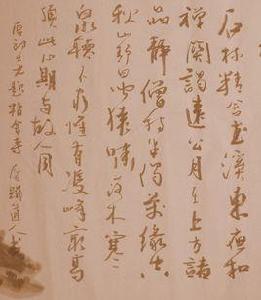 石林精舍武溪東夜扣
禪關謁遠公月在上方諸
品靜僧持半偈萬緣空
秋山竟日聞猿嘯落木寒
泉聽不窮惟有雙峰最高
頂此心期與故人同
唐郎士元題精舍寺 道人書